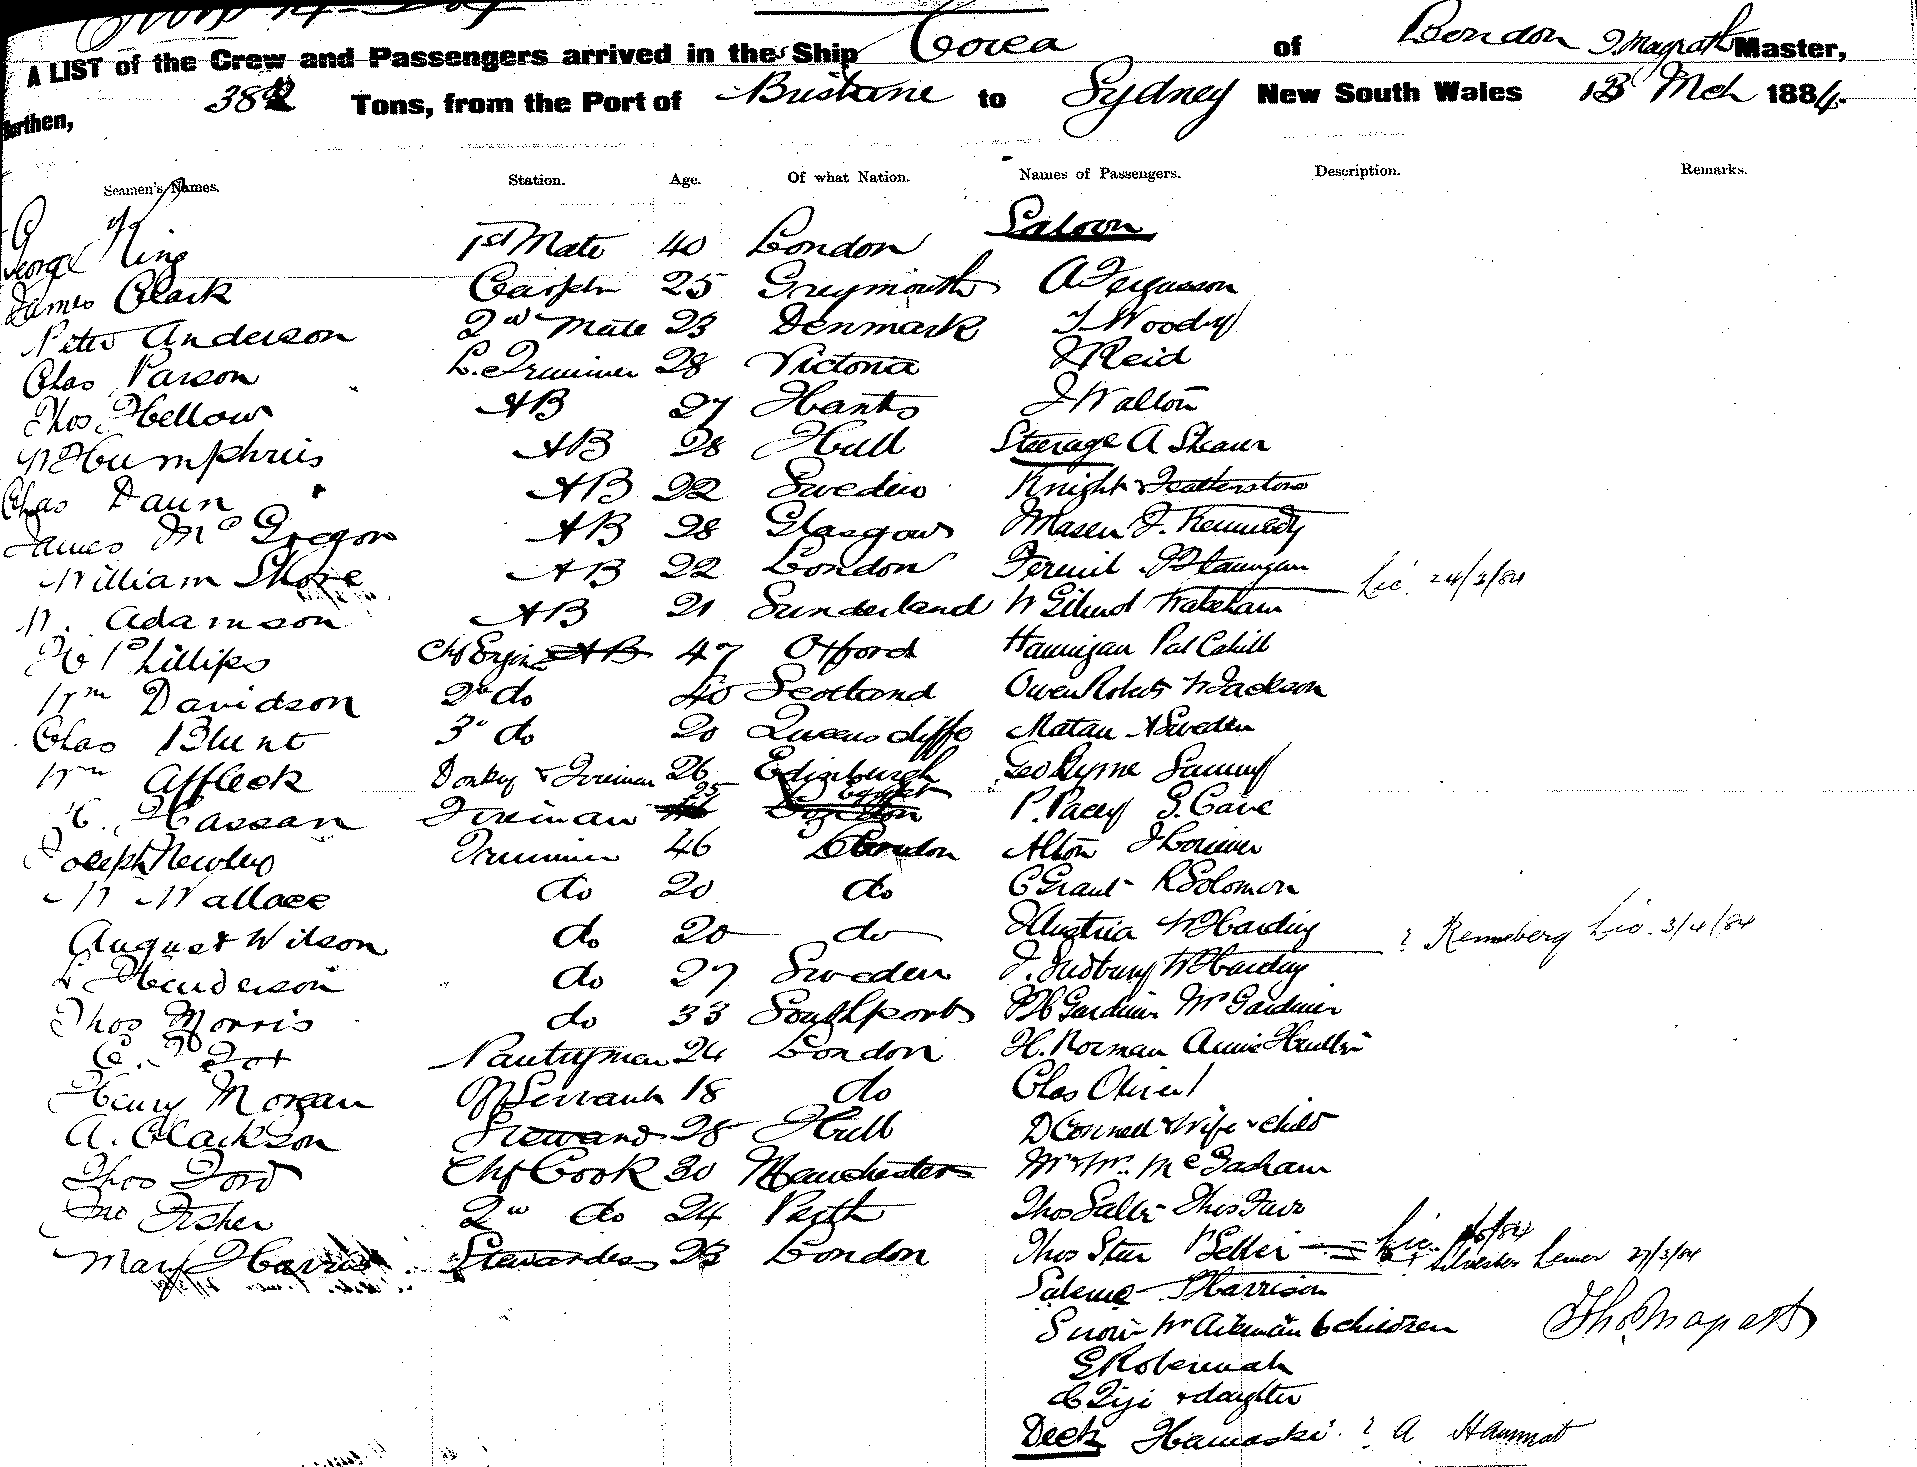 A LIST of the Crew and Passengers arrived in the Ship Corea of London Master,
Burthen, 382 Tons, from the Port of Brisbane to Sydney New South Wales 13 Mch 1884.
Seamen's Names. Station. Age. Of what Nation. Names of Passengers. Description. Remarks.
George King 1st Mate 40 London Saloon
James Clark Carptr 25 Greymouth A Fergusson
Peter Anderson 2nd Mate 23 Denmark
Chas Parson L. Trimmer 28 Victoria J Reid
Thos Hellow AB 27 Hants J Walton
W Humphris AB 28 Hull Steerage A Shaw
Chas Daun AB 22 Sweden Knight Featherstone
James McGregor AB 28 Glasgow Mason J. Kennedy
William Shore AB 22 London Flannigan
W. Adamson AB 21 Sunderland W Lic. 24/3/84
H Phillips Chf Engine AB 47 Oxford Hannigan Pat Cahill
Wm Davidson 2nd do 40 Scotland Owen Roberts W Jackson
Chas Blunt 3rd do 20 Queenscliffe Sweden
Wm Affleck Donkey & Fireman 26 Edinburgh Geo Ryme Sammy
H. Hassan Fireman 25 P. Pacey S. Cave
Joseph Newley Trimmer 46 London Alton J Lorimer
W Wallace do 20 do C Grant R Solomon
August Wilson do 20 do W Harding ? Renneberg Lic. 3/4/84
L Henderson do 27 Sweden J. Sudbury W Harding
Thos Morris do 33 Southport Gardiner Mrs Gardiner
C. Fox Pantryman 24 London H. Norman Annie
Henry Morgan Servant 18 do Chas Oliver
A. Clarkson Steward 28 Hull D Connell & Wife & child
Thos Ford Chf Cook 30 Manchester Mr & Mrs
Jno Fisher 2nd do 24 Perth Thos Thos
Mary Harris Stewardess 23 London Thos Lic. 27/3/84
Harrison
Snow Mrs Aikman 6 children
& daughter
Deck Hamaski ? A Hammat